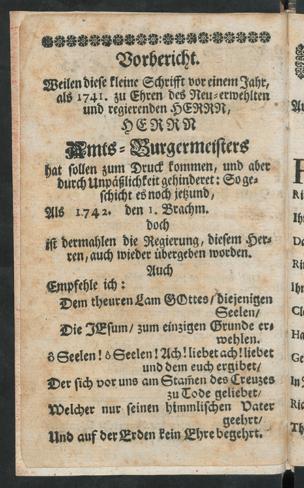 Vorbericht.
Weilen diese kleine Schrifft vor einem Jahr,
als 1741. zu Ehren des Neu-erwehlten
und regierenden HERRN,
HERRN
Amts-Burgermeisters
hat sollen zum Druck kommen, und aber
durch Unpäßlichkeit gehinderet: So ge-
schicht es noch jetzund,
Als 1742. den 1. Brachm.
doch
ist dermahlen die Regierung, diesem Her-
ren, auch wieder übergeben worden.
Auch
Empfehle ich:
Dem theuren Lam GOttes / diejenigen
Seelen /
Die JEsum / zum einzigen Grunde er-
wehlen.
ô Seelen! ô Seelen! Ach! liebet ach! liebet
und dem euch ergibet /
Der sich vor uns am Stam̃en des Creutzes
zu Tode geliebet /
Welcher nur seinen himmlischen Vater
geehrt /
Und auf der Erden kein Ehre begehrt.